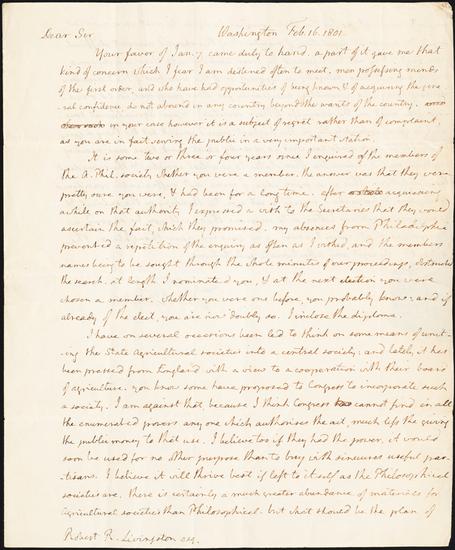 Dear Sir Washington Feb. 16. 1801.
Your favor of Jan. 7 came duly to hand. a part of it gave me that
kind of concern which I fear I am destined often to meet. men possessing minds
of the first order, and who have had opportunities of being known & of acquiring the gene-
-ral confidence, do not abound in any country beyond the wants of the country.
in your case however it is a subject of regret rather than of complaint,
as you are in fact serving the public in a very important station.
It is some two or three or four years since I enquired of the members of
the A. Phil. society whether you were a member. the answer was that they were
pretty sure you were, & had been for a long time. after acquiescing
awhile on that authority I expressed a wish to the Secretaries that they would
ascertain the fact, which they promised. my absences from Philadelphia
prevented a repetition of the enquiry as often as I wished, and the members
names being to be sought through the whole minutes of our proceedings, obstructed
the search. at length I nominated you, & at the next election you were
chosen a member. whether you were one before, you probably know; and if
already of the elect, you are now doubly so. I inclose the diploma.
I have on several occasions been led to think on some means of unit-
-ing the State Agricultural societies into a central society: and lately it has
been pressed from England with a view to a cooperation with their board
of agriculture. you know some have proposed to Congress to incorporate such
a society. I am against that, because I think Congress cannot find in all
the enumerated powers any one which authorises the act, much less the giving
the public money to that use. I believe too if they had the power, it would
soon be used for no other purpose than to buy with sinecures useful par-
-tisans. I believe it will thrive best if left to itself as the Philosophical
societies are. there is certainly a much greater abundance of materials for
Agricultural societies than Philosophical. but what should be the plan of
Robert R. Livingston esq.